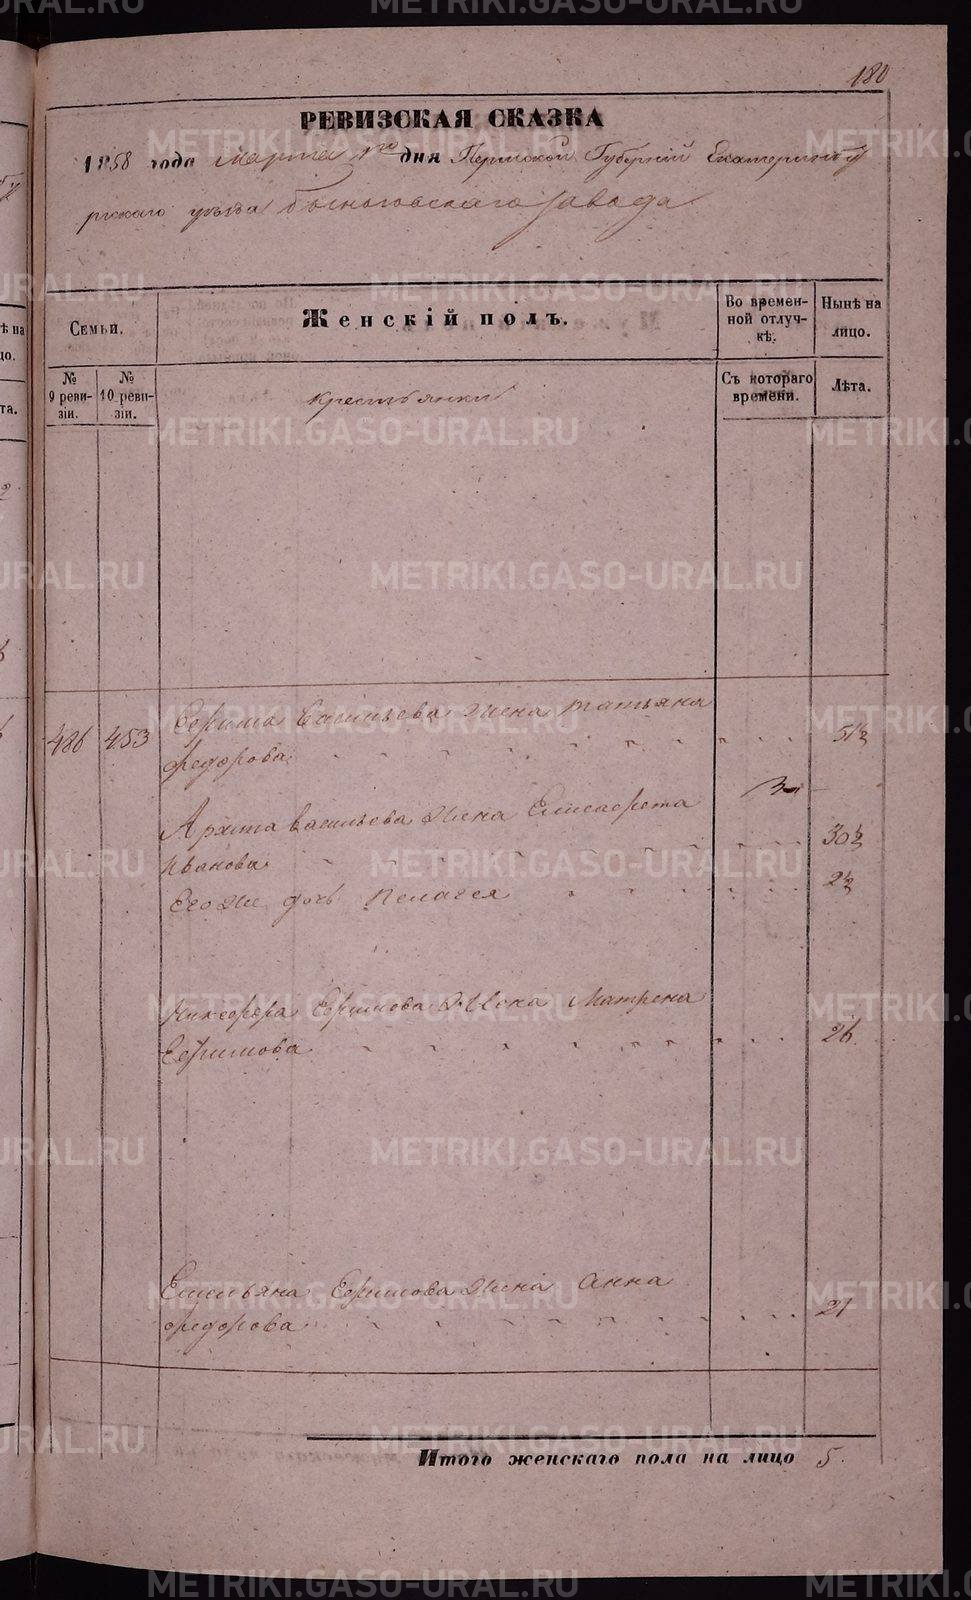 180
РЕВИЗСКАЯ СКАЗКА
1858 года Марта 1го дня Пермской Губерніи Екатеринбу
ргскаго уѣзда Быньговскаго завода
Семьи.
Женскій полъ.
Во времен-
ной отлуч-
кѣ.
Нынѣ на
лицо.
№
9 реви-
зіи.
№
10 реви-
зіи.
Съ котораго
времени.
Лѣта.
Крестьянки
486 453 Ефима Васильева жена Татьяна
Федорова 51½
Архипа Васильева жена Елисавета
Иванова 30½
Его же дочь Пелагея 2½
Никифора Ефимова жена Матрена
Ефимова 26
Емельяна Ефимова жена Анна
Федорова 21
Итого женскаго пола на лицо 5
METRIKI.GASO-URAL.RU